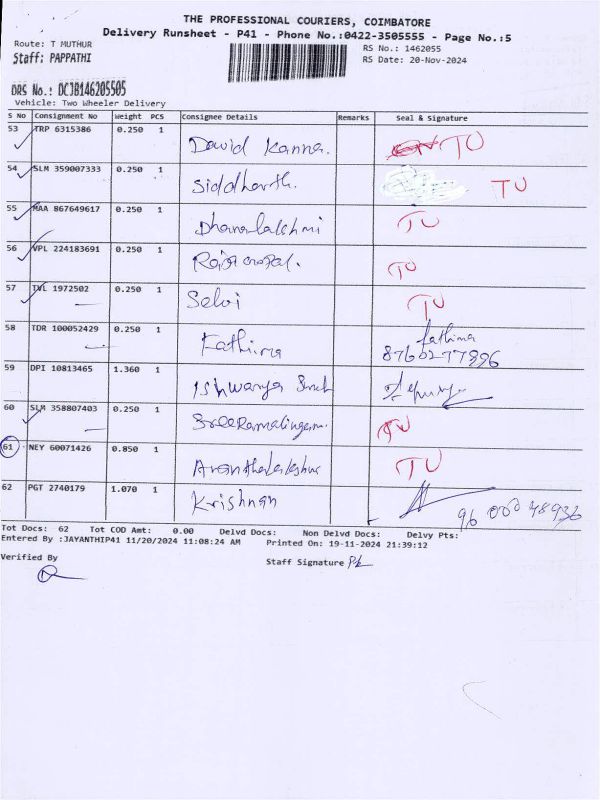 THE PROFESSIONAL COURIERS, COIMBATORE
Delivery Runsheet - P41 - Phone No.:0422-3505555 - Page No.:5
Route: T MUTHUR RS No.: 1462055
Staff: PAPPATHI RS Date: 20-Nov-2024
DRS No.: DCJB146205505
Vehicle: Two Wheeler Delivery
S No Consignment No Weight PCS Consignee Details Remarks Seal & Signature
53 TRP 6315386 0.250 1 David Kanna. TU
54 SLM 359007333 0.250 1 Siddharth. TU
55 MAA 867649617 0.250 1 Dhanalakshmi TU
56 VPL 224183691 0.250 1 Rajagopal. TU
57 TVL 1972502 0.250 1 Selvi TU
58 TDR 100052429 0.250 1 Fathima fathima
8760277996
59 DPI 10813465 1.360 1 Ishwarya
60 SLM 358807403 0.250 1 SreeRamalingam. TU
61 NEY 60071426 0.850 1 TU
62 PGT 2740179 1.070 1 Krishnan
96 000 48936
Tot Docs: 62 Tot COD Amt: 0.00 Delvd Docs: Non Delvd Docs: Delvy Pts:
Entered By :JAYANTHIP41 11/20/2024 11:08:24 AM Printed On: 19-11-2024 21:39:12
Verified By
Staff Signature